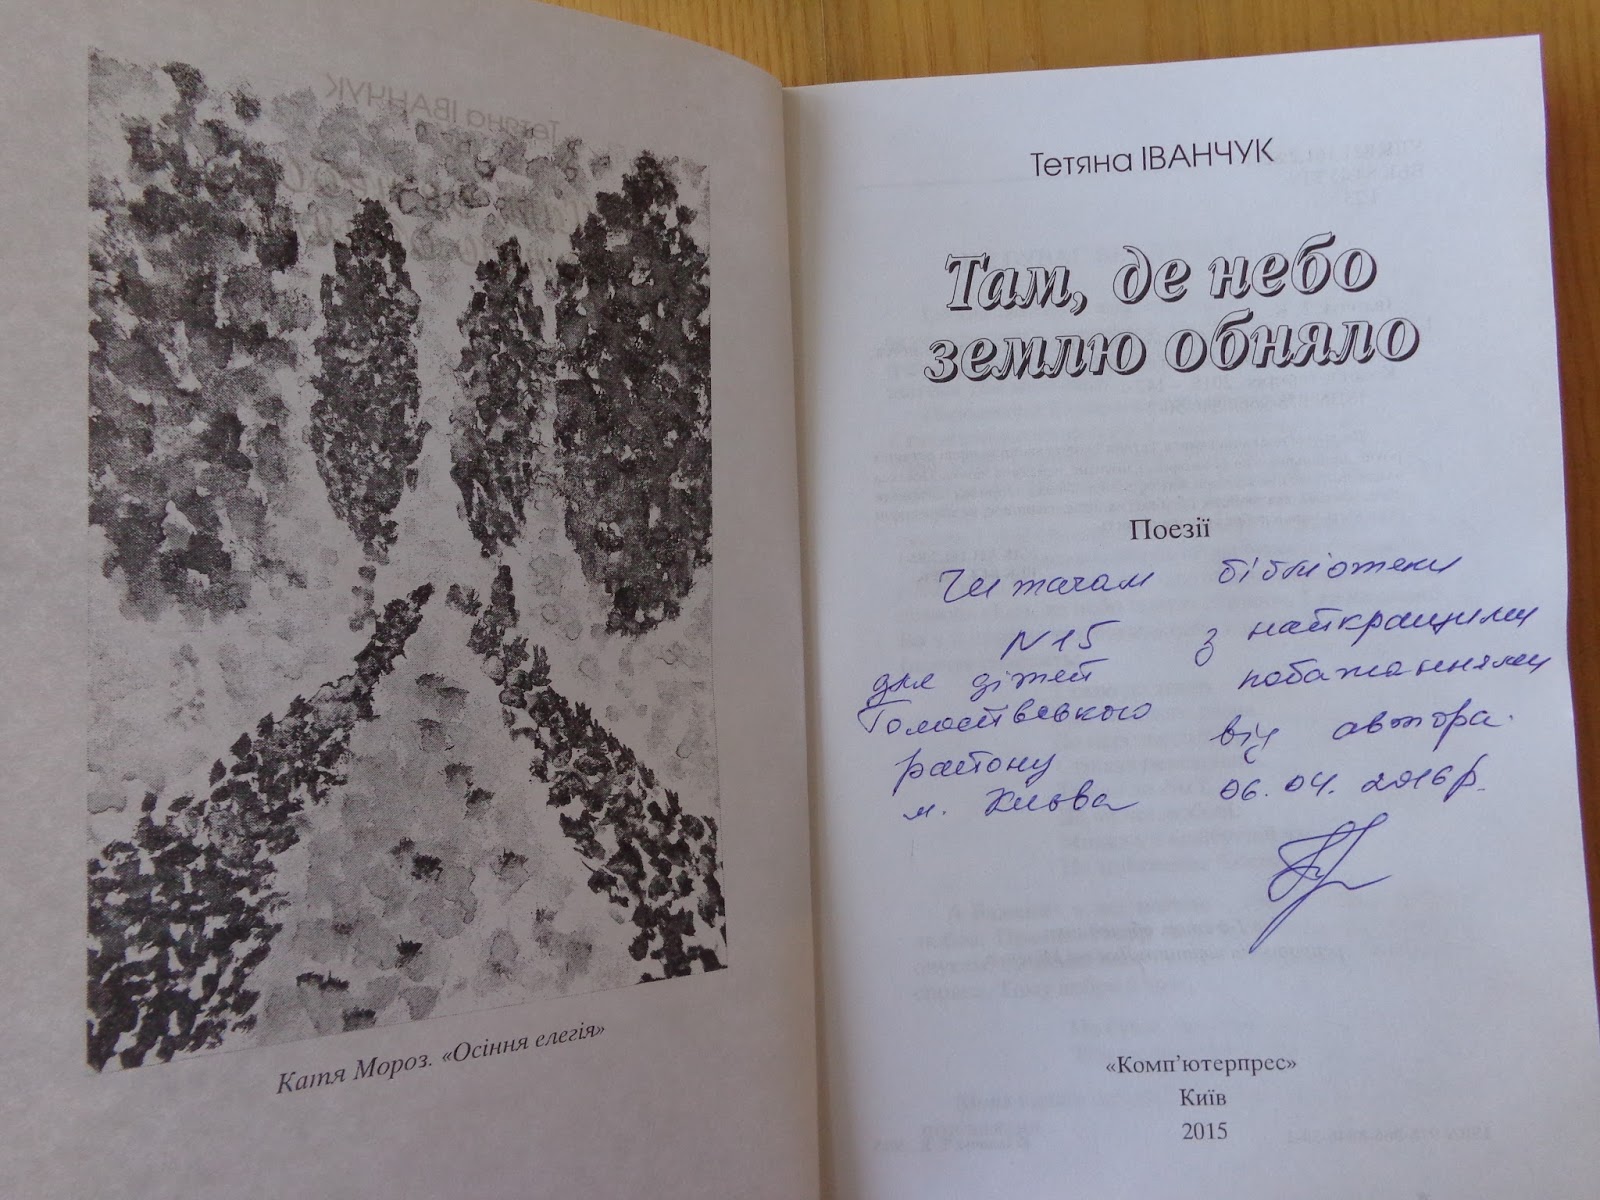 Катя Мороз. «Осіння елегія»
Тетяна ІВАНЧУК
Там, де небо
землю обняло
Поезії
Читачам бібліотеки
N15
для дітей
Голосіївського
району
м. Києва
з найкращими
побажаннями
від автора.
06.04.2016р.
«Комп'ютерпрес»
Київ
2015